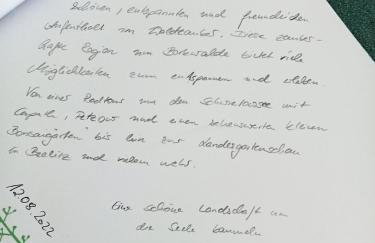 schönen, entspannten und freundlichen
Aufenthalt im
Region um Borkwalde bietet viele
Möglichkeiten zum entspannen und erleben.
Von einer Radtour um den Schwielowsee mit
Caputh, Petzow und einen sehenswerten kleinen
bis hin zur Landesgartenschau
in Beelitz und vielem mehr.
12.08.2022
Eine schöne Landschaft um
die Seele baumeln